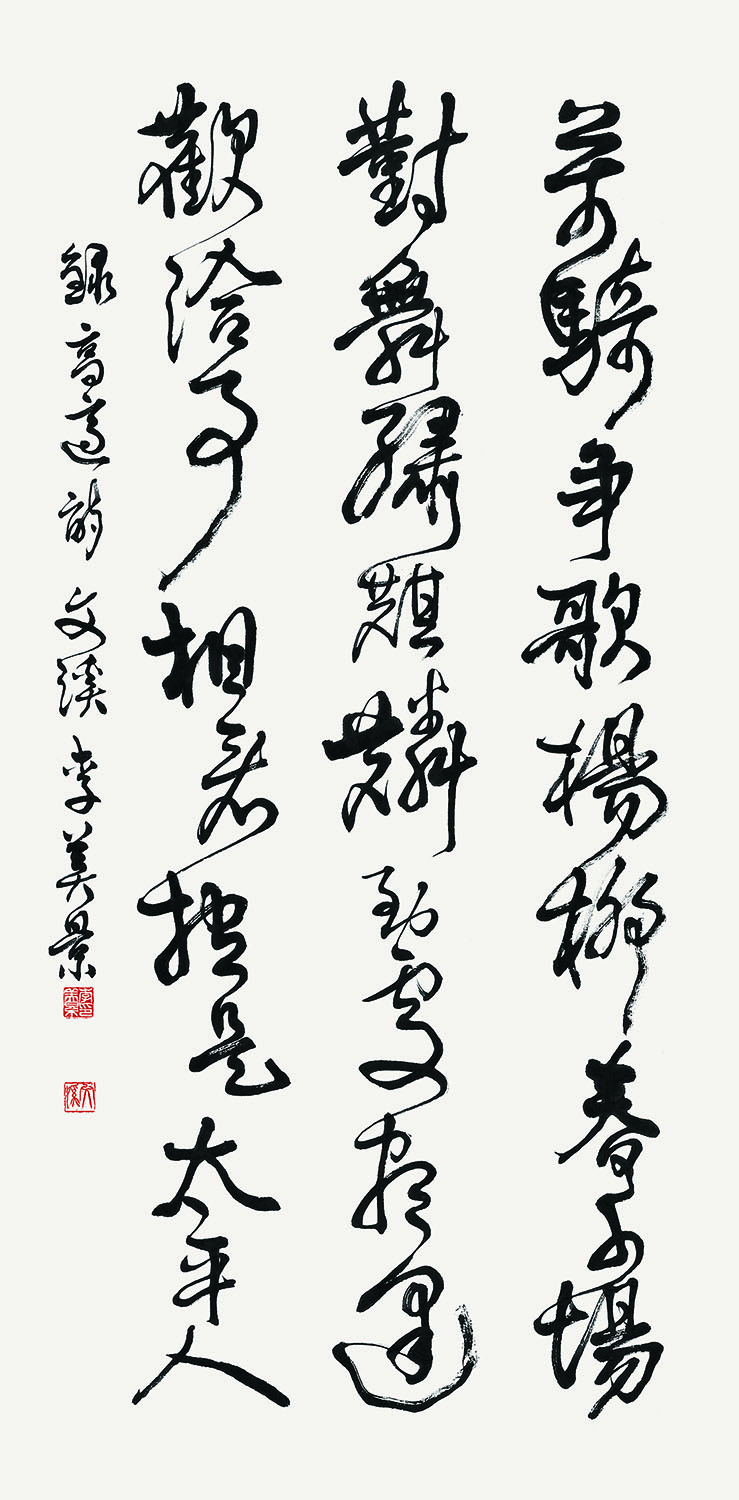 萬騎爭歌楊柳春千場
對舞繡麒麟到處盡逢
歡洽事相看揔是太平人
錄高適詩 文溪 李美景